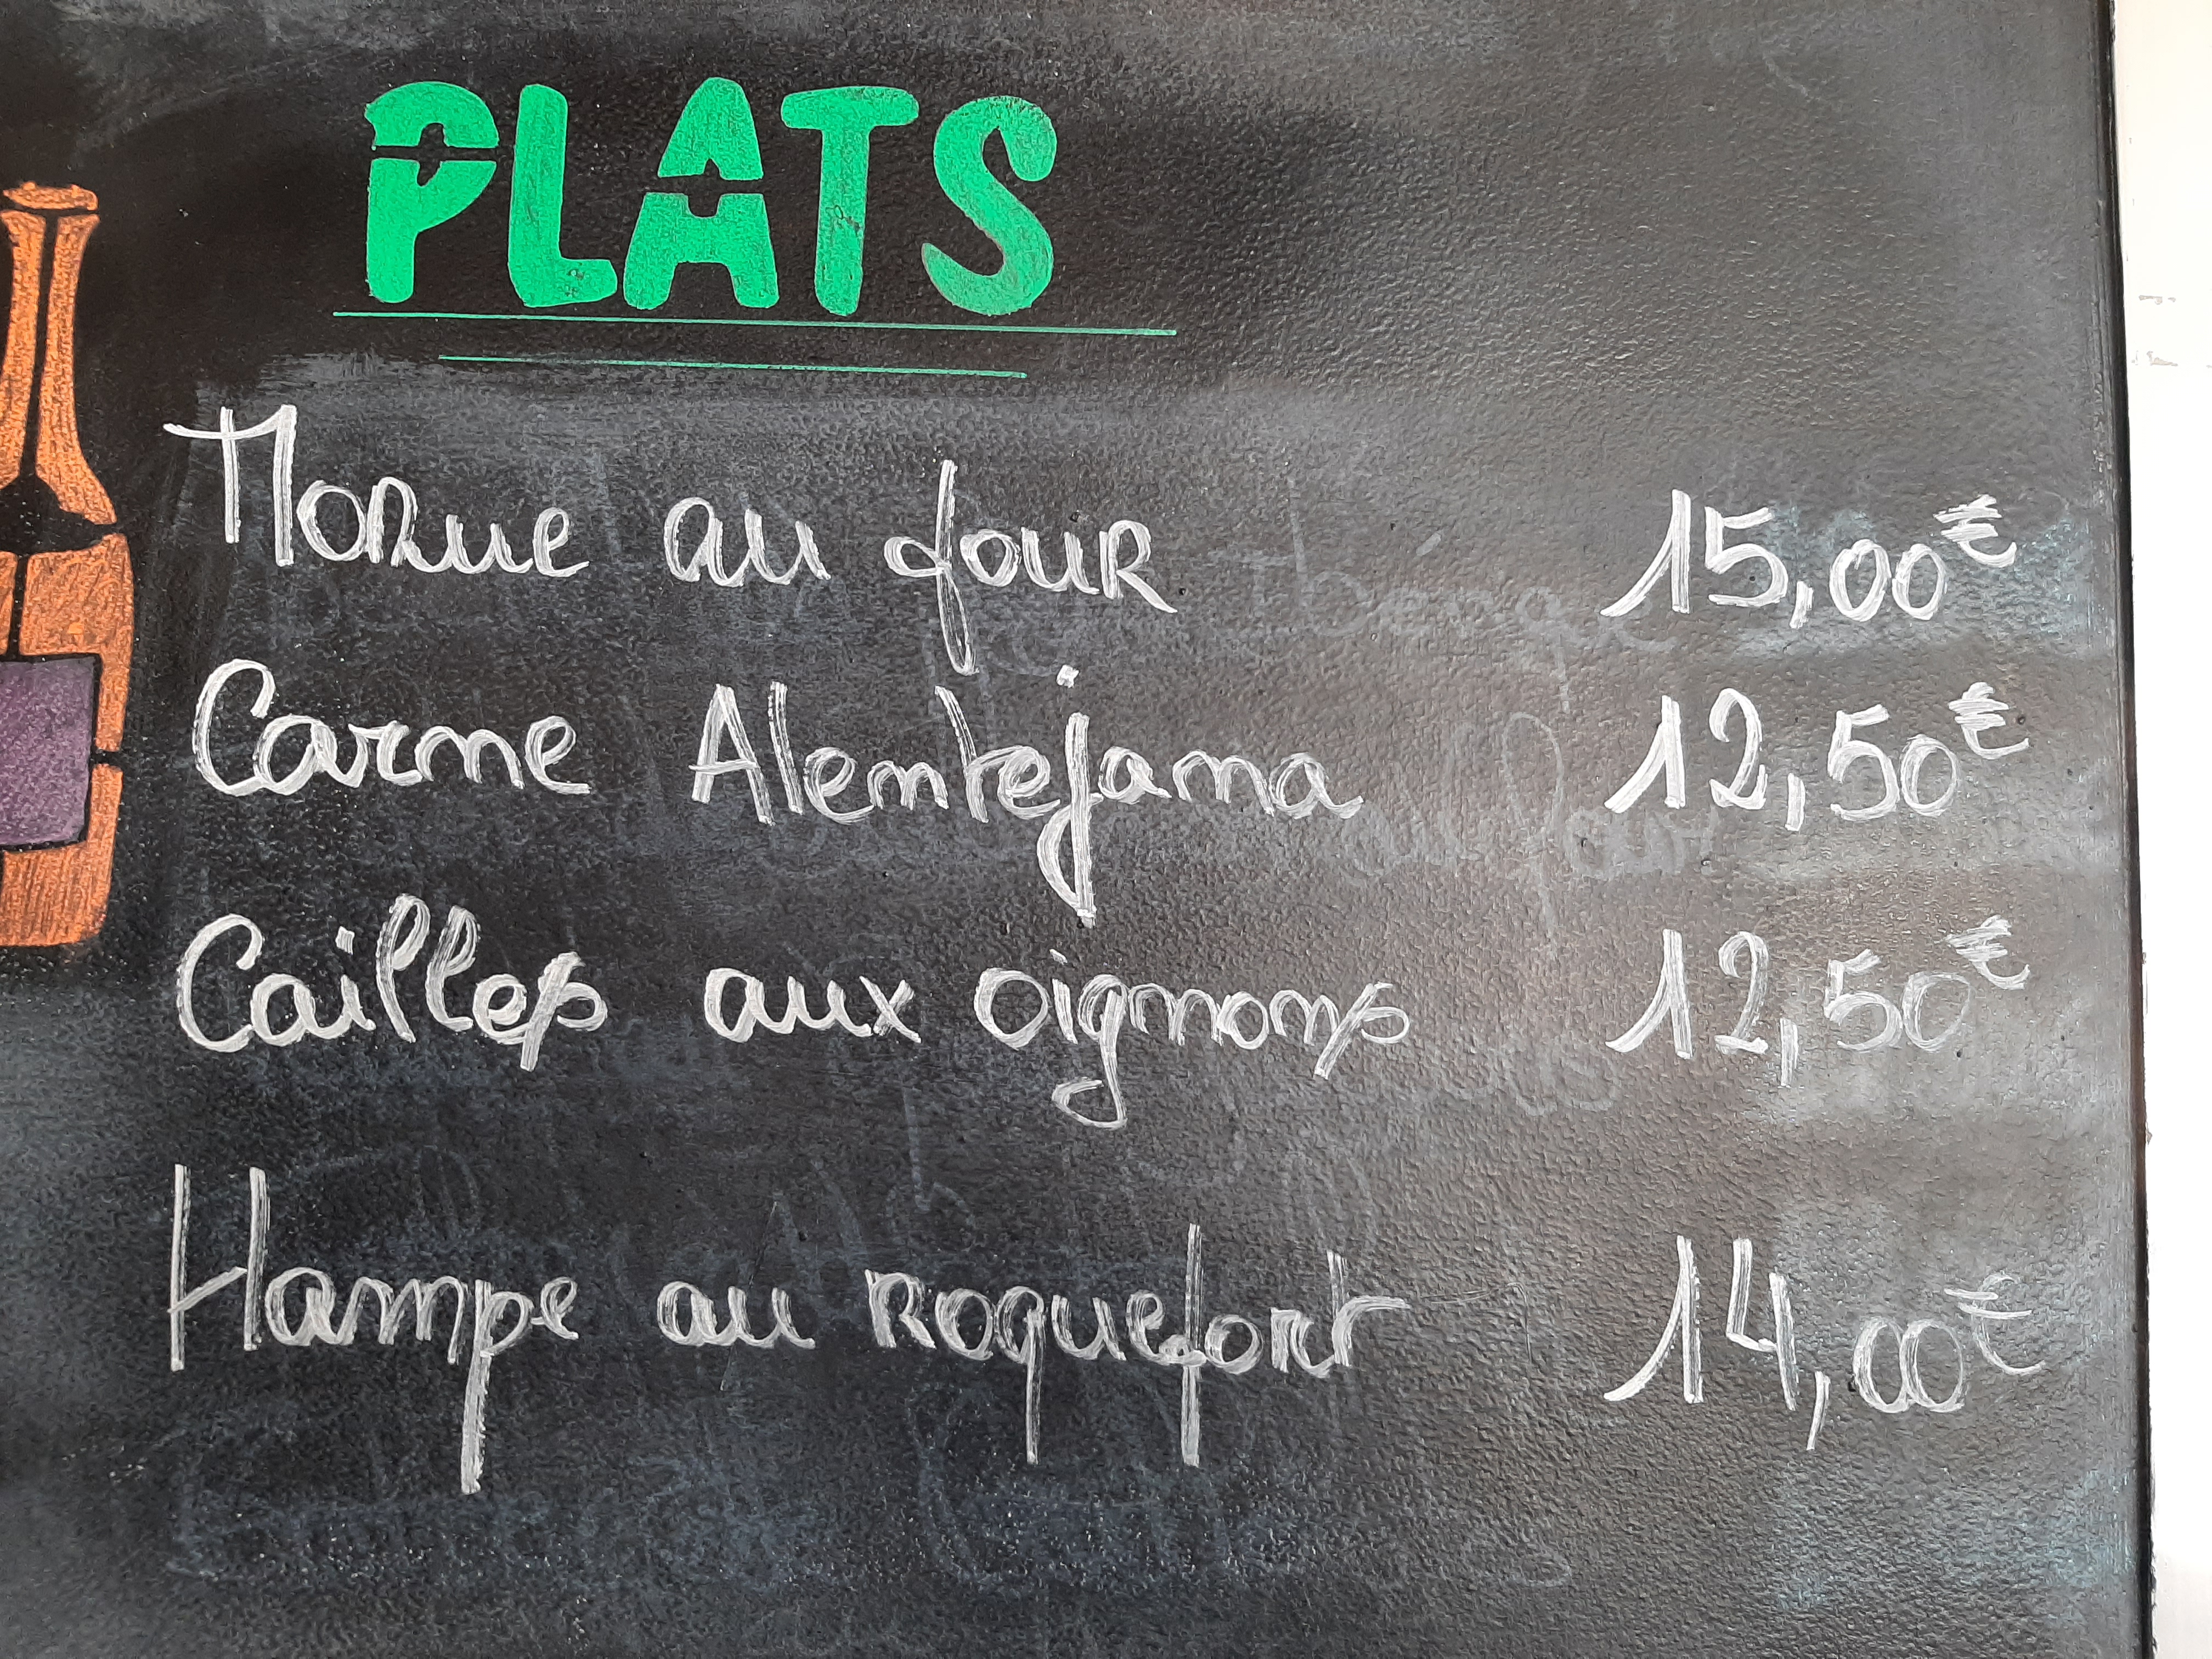 PLATS
Morue au four 15,00€
Carne Alentejana 12,50€
Cailles aux oignons 12,50€
Hampe au roquefort 14,00€